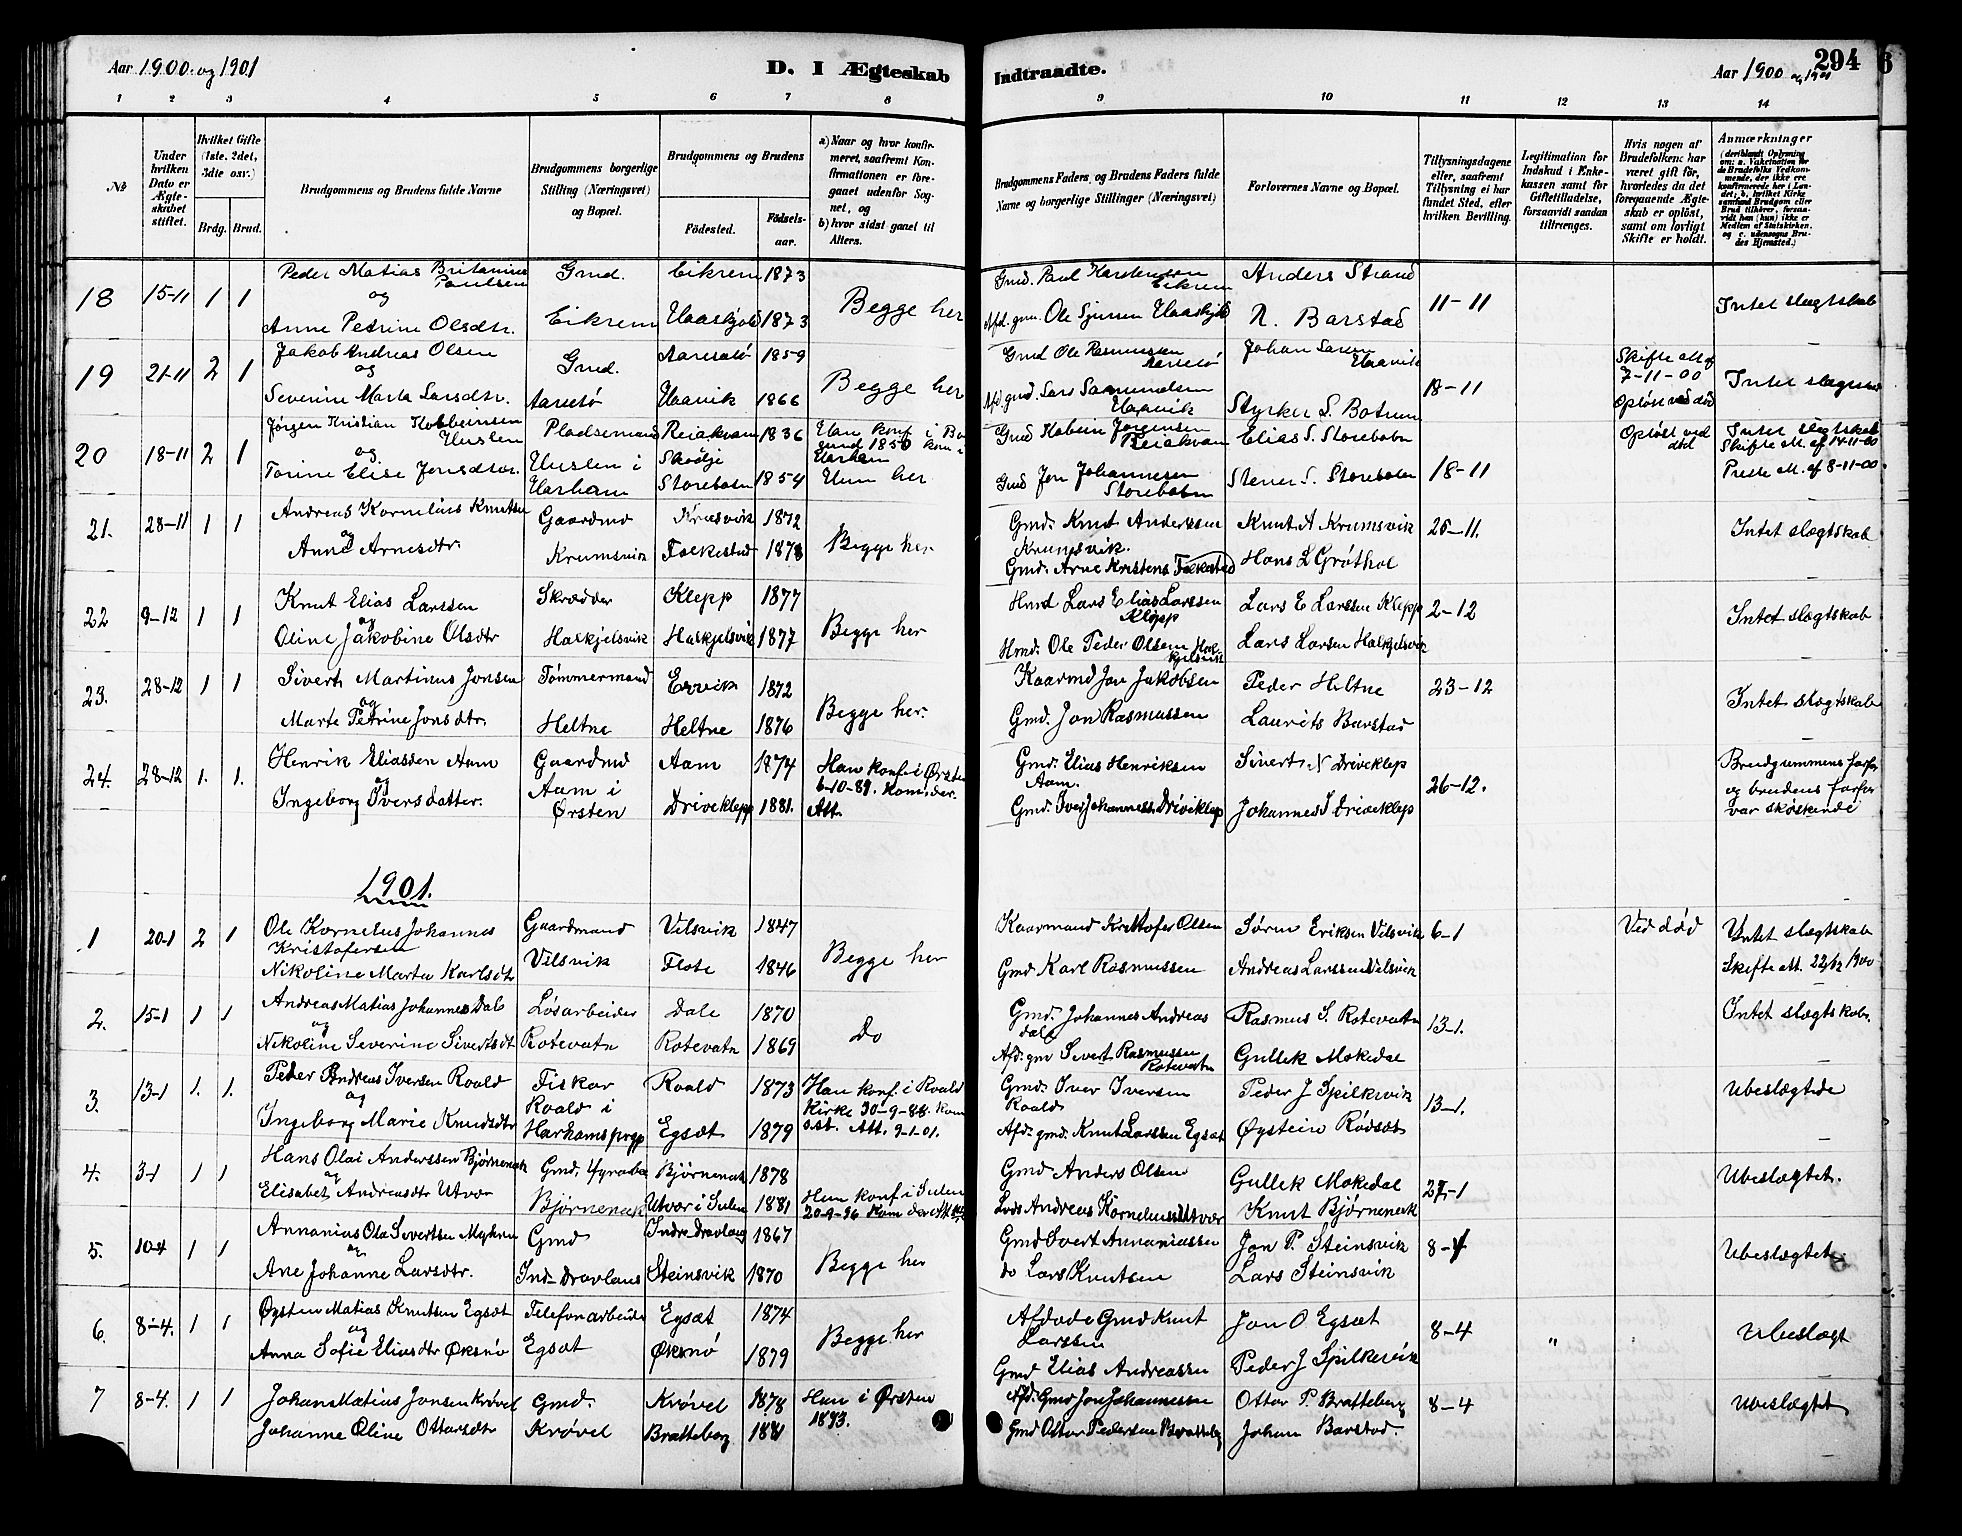 Aar 1900 og 1901
D. I Ægteskab Indtraadte.
Aar 1900 og 1901
294
6
1 2 3 4 5 6 7 8 9 10 11 12 13 14
№
Under hvilken Dato er Ægteskabet stiftet.
Hvilket Gifte (1ste, 2det, 3die osv.)
Brdg. Brud.
Brudgommens og Brudens fulde Navne
Brudgommens borgerlige Stilling (Næringsvei) og Bopæl.
Brudgommens og Brudens
Födested.
Födselsaar.
a) Naar og hvor konfirmeret, saafremt Konfirmationen er foregaaet udenfor Sognet, og
b) hvor sidst gaaet til Alters.
Brudgommens Faders, og Brudens Faders fulde Navne og borgerlige Stillinger (Næringsvei)
Forlovernes Navne og Bopæl.
Tillysningsdagene eller, saafremt Tillysning ei har fundet Sted, efter hvilken Bevilling.
Legitimation for Indskud i Enkekassen samt for Giftetilladelse, forsaavidt saadan tiltrænges.
Hvis nogen af Brudefolkene har været gift før, hvorledes da det foregaaende Ægteskab er opløst, samt om lovligt Skifte er holdt.
Anmærkninger
(deriblandt Oplysning om: a. Vakcination for de Brudefolks Vedkommende, der ikke ere konfirmerede her i Landet; b. hvilket Kirkesamfund Brudgom eller Brud tilhører, forsaavidt han (hun) ikke er Medlem af Statskirken, og c. udensogns Brudes Hjemsted.)
18 15-11 1 1 Peder Matias Britanius Paulsen Gmd. Eikrem 1873 Begge her Gmd. Paul Karstensen Eikrem Anders Strand 11-11 Intet slægtskab
og
Anne Petrine Olsdtr. Eikrem Haaskjold 1873 Afd. gm. Ole Sjursen Haaskjold R. Barstad
19 21-11 2 1 Jakob Andreas Olsen Gmd. Aarsetø 1859 Begge her Gmd Ole Rasmussen Aarsetø Johan Haavik 18-11 Skifte At. af 7-11-00 Opløst ved død Intet slægtsk
og
Severine Marta Larsdtr. Aarsetø Haavik 1866 Afd. gmd. Lars Samuelsen Haavik Styrker S. Botnen
20 18-11 2 1 Jørgen Kristian Kobbeinsen Huslen Pladsemand Reiakvam 1836 Han konf i 1850 kom i Harham Gmd Kabein Jørgensen Reiakvam Elias S. Storebotn 18-11 Opløst ved død Intet slegtskab Skifte At. af 14-11-00
og
Torine Elise Jonsdtr. Huslen i Harham Skodje Storebotn 1854 Hun her Gmd Jon Johannesen Storebotn Stener S. Storebotn Preste At. af 8-11-00
21. 28-11 1 1 Andreas Kornelius Knutsen Gaardmd Krumsvik 1872 Begge her. Gmd. Knut Anderssen Krumsvik. Knut A Krumsvik 25-11. Intet slægtskab
og
Anne Arnesdtr. Krumsvik Folkestad 1878 Gmd. Arne Kristens Folkestad Hans L Grøthol
22 9-12 1 1 Knut Elias Larssen Skrædder Klepp 1877 Begge her Hmd Lars Elias Larssen Klepp Lars E Larssen Klepp 2-12 Intet slægtskab
og
Oline Jakobine Olsdtr Halkjelsvik Halkjelsvik 1877 Hmd. Ole Peder Olsen Halkjelsvik Lars Larsen Halkjelsvik
23. 28-12 1 1 Sivert Martinus Jonsen Tømmermand Ervik 1872 Begge her. Kaarmd Jon Jakobsen Peder Heltne 23-12 Intet slægtskab
og
Marte Petrine Jonsdtr. Heltne Heltne 1876 Gmd. Jon Rasmussen Laurits Barstad
24. 28-12 1. 1. Henrik Eliassen Aam Gaardmd Aam 1874 Han konf. i Ørsten 6-10-89. Kom. der. Gmd. Elias Henriksen Aam. Sivert N Driveklep 26-12. Brudgummens farfar og brudens farfar var søskende
og
Ingeborg Iversdatter. Aam i Ørsten Driveklepp 1881. Att. Gmd. Iver Johanness. Driveklep Johannes I Driveklep
1901.
1 20-1 2 1 Ole Kornelius Johannes Kristofersen Gaardmand Vilsvik 1847 Begge her Kaarmand Kristofer Olsen Søren Eriksen Vilsvik 6-1 Ved død Intet slægtskab
Nikoline Marta Karlsdtr Vilsvik Flote 1846 Gmd Karl Rasmussen Andreas Larssen Vilsvik Skifte At. 22/12 1900
2. 15-1 1 1 Andreas Matias Johannes Dale Løsarbeider Dale 1870 Do Gmd. Johannes Andreas Dale Rasmus S. Rotevatn 13-1. Intet slægtskab.
og
Nikoline Severine Sivertsdt Rotevatn Rotevatn 1869 Afd. gm Sivert Rasmussen Rotevatn Gullek Mokedal
3. 13-1 1. 1. Peder Andreas Iversen Roald Fisker Roald 1873 Han konf. i Roald Kirke 30-9-88. Kom Gmd. Iver Iversen Roald Peder J Spilkevik 13-1. Ubeslægtede
og
Ingeborg Marie Knudsdtr Roald i Harhams prgp Egsæt 1879 s.st. Att. 9-1-01. Afd. gmd. Knut Larssen Egsæt Øystein Rødsæt
4. 3-1 1 1 Hans Olai Anderssen Bjørnenak Gmd, Bjørnenak 1878 Gmd Anders Olsen Gullek Mokedal 27-1 Ubeslægtet.
og
Elisabet Andreasdtr Utvær Bjørnenak Utvær i Sulen 1881 Hun konf i Sulen 20-9-96 Kom der Lods Andreas Kornelius Utvær Knut Bjørnenak
5. 10-4 1 1 Annanius Ola Sivertsen Gmd Indre Dravlaus 1867 Begge her Gmd Sivert Annaniassen Jon P. Steinsvik 8-4 Ubeslægtet
og
Ane Johanne Larsdtr. Ind-Dravlaus Steinsvik 1870 do Lars Knutsen Lars Steinsvik
6. 8-4. 1 1 Øysten Matias Knutsen Egsæt Telefonarbeider Egsæt 1874 Begge her Afdøde Gmd Knut Larssen Jon O Egsæt 8-4 " Ubeslægt
og
Anna Sofie Eliasdtr Øksnø Egsæt Øksnø 1879 Gmd Elias Andreassen Peder J Spilkevik
7 8-4. 1 1 Johan Matias Jonsen Krøvel Gmd. Krøvel 1878 Han i Ørsten 1893. Afd. Gmd Jon Johannessen Ottar P. Bratteberg 8-4 Ubeslægtet
Johanne Oline Ottarsdtr Krøvel Bratteberg 1881 Gmd Ottar Pedersen Bratteberg Johan Barstad.